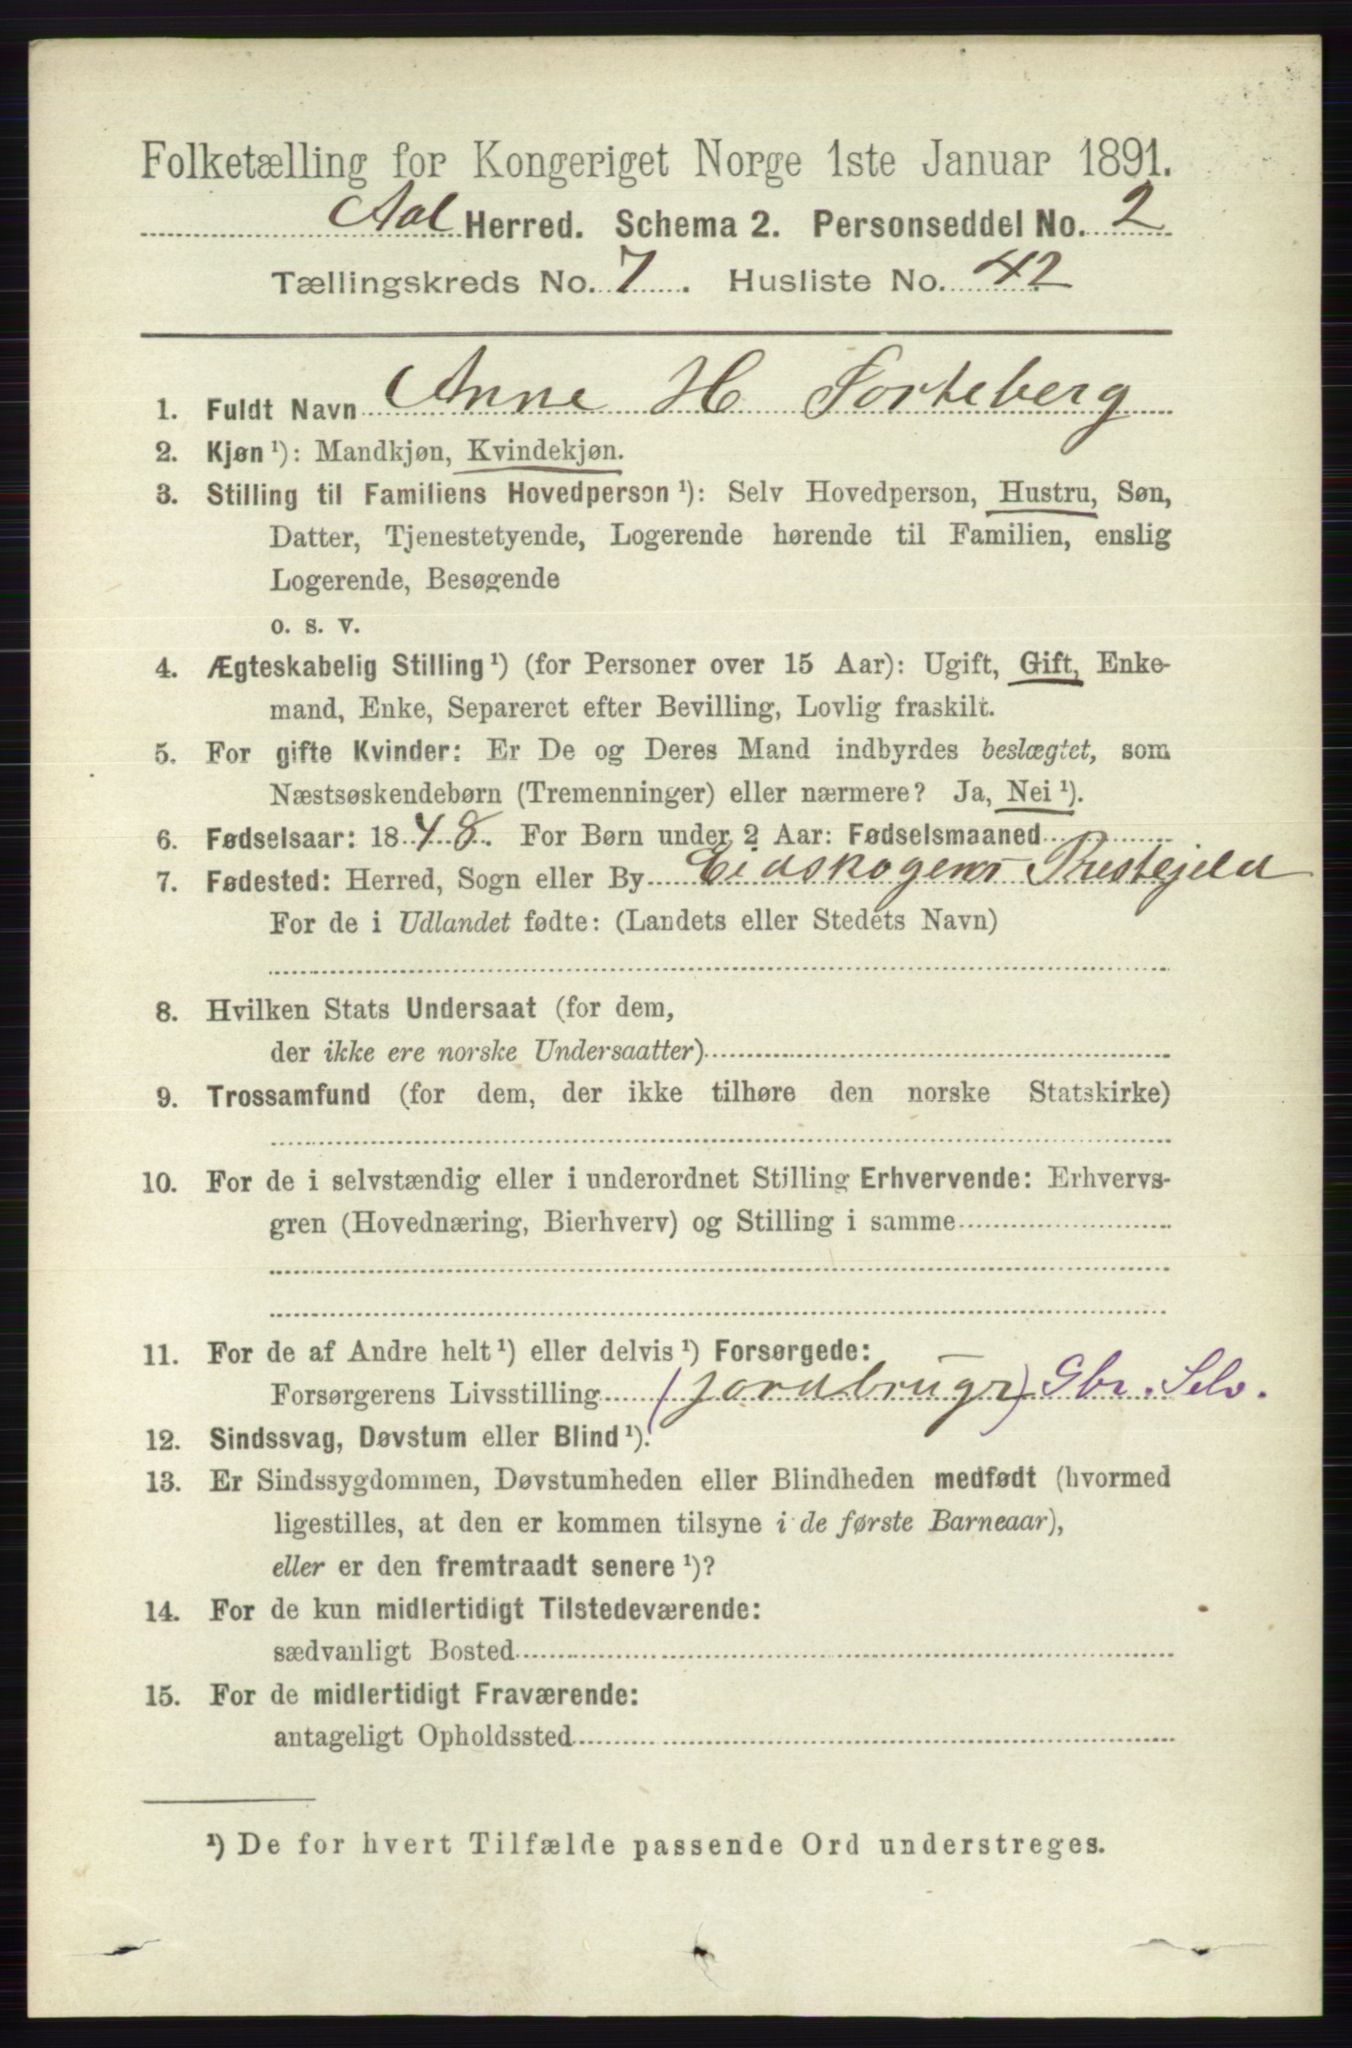 Folketælling for Kongeriget Norge 1ste Januar 1891.
Aal Herred. Schema 2. Personseddel No. 2
Tællingskreds No. 7. Husliste No. 42
1. Fuldt Navn Anne H Forteberg
2. Kjøn ¹): Mandkjøn, Kvindekjøn.
3. Stilling til Familiens Hovedperson ¹): Selv Hovedperson, Hustru, Søn,
Datter, Tjenestetyende, Logerende hørende til Familien, enslig
Logerende, Besøgende
o. s. v.
4. Ægteskabelig Stilling ¹) (for Personer over 15 Aar): Ugift, Gift, Enke-
mand, Enke, Separeret efter Bevilling, Lovlig fraskilt.
5. For gifte Kvinder: Er De og Deres Mand indbyrdes beslægtet, som
Næstsøskendebørn (Tremenninger) eller nærmere? Ja, Nei ¹).
6. Fødselsaar: 1848. For Børn under 2 Aar: Fødselsmaaned
7. Fødested: Herred, Sogn eller By Eidskogens Prestejeld
For de i Udlandet fødte: (Landets eller Stedets Navn)
8. Hvilken Stats Undersaat (for dem,
der ikke ere norske Undersaatter)
9. Trossamfund (for dem, der ikke tilhøre den norske Statskirke)
10. For de i selvstændig eller i underordnet Stilling Erhvervende: Erhvervs-
gren (Hovednæring, Bierhverv) og Stilling i samme
11. For de af Andre helt ¹) eller delvis ¹) Forsørgede:
Forsørgerens Livsstilling (jordbrugr) Gbr. Selv.
12. Sindssvag, Døvstum eller Blind ¹).
13. Er Sindssygdommen, Døvstumheden eller Blindheden medfødt (hvormed
ligestilles, at den er kommen tilsyne i de første Barneaar),
eller er den fremtraadt senere ¹)?
14. For de kun midlertidigt Tilstedeværende:
sædvanligt Bosted
15. For de midlertidigt Fraværende:
antageligt Opholdssted
¹) De for hvert Tilfælde passende Ord understreges.